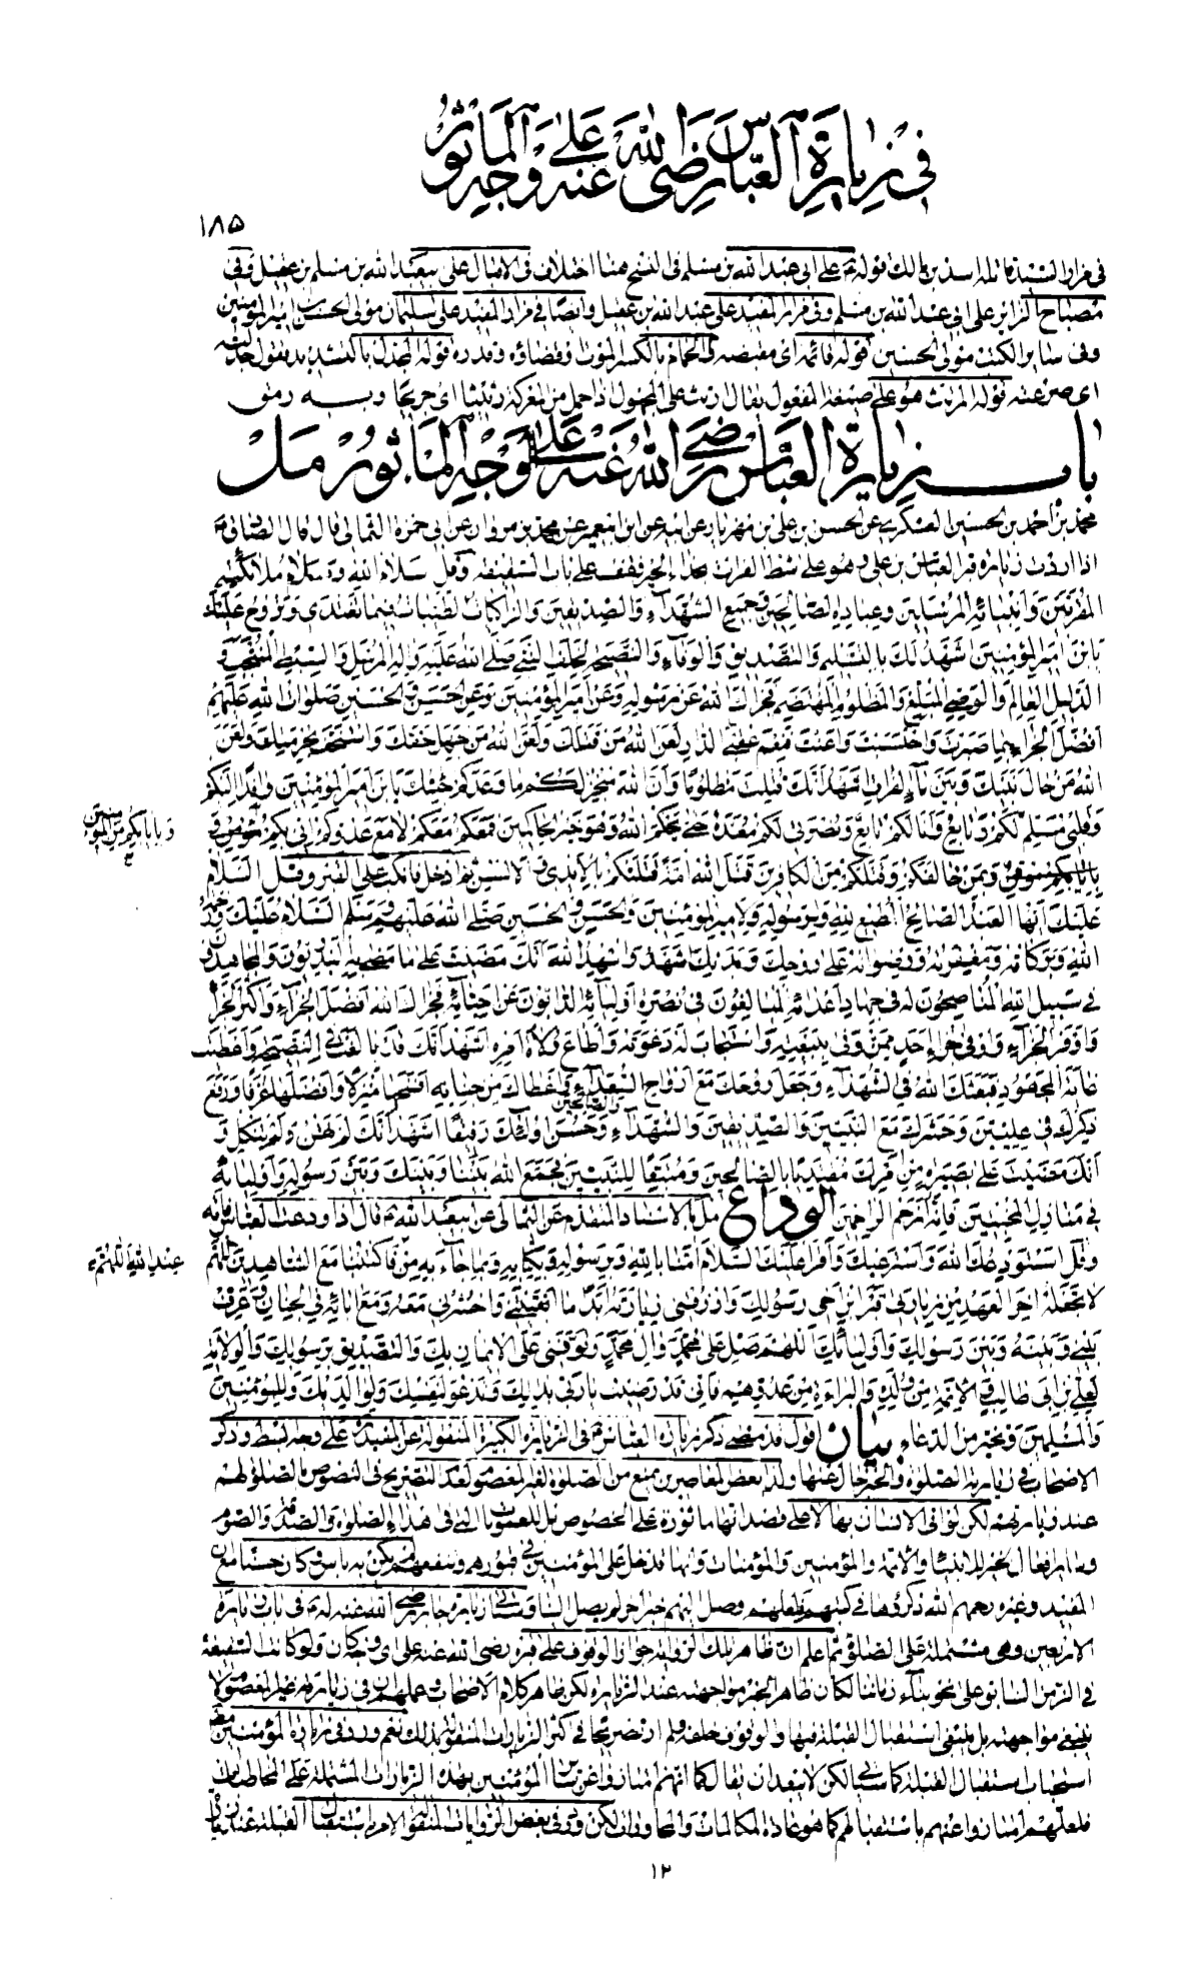 في زيارة العباس رضي الله عنه على وجه المأثور
١٨٥
في مزار السيد مالك قوله على ابي عبد الله بن مسلم في النسخ هنا اختلاف في الاقبال على عبد الله بن مسلم بن عقيل وفي
مصباح الزائر على ابي عبد الله بن مسلم وفي مزار المفيد على عبد الله بن عقيل وايضا في مزار المفيد على سليمان مولى الحسن امير المؤمنين
وفي سائر الكتب مولى الحسين قوله قائمه اى مقبضه قوله الحمام بالكسر الموت وقضاؤه وقدره قوله
اى صرعته قوله المرتث هو على صيغة المفعول يقال ارتث على المجهول اذا حمل من المعركة رثيثا اى جريحا وبه رمق
باب زيارة العباس رضي الله عنه على وجه المأثور مل
محمد بن احمد بن الحسين العسكري عن الحسن بن علي بن مهزيار عن ابيه عن ابن ابي عمير عن محمد بن مروان عن ابي حمزة الثمالي قال قال الصادق
اذا اردت زيارة قبر العباس بن علي وهو على شط الفرات بحذاء الحير فقف على باب السقيفة وقل سلام الله وسلام ملائكته
المقربين وانبيائه المرسلين وعباده الصالحين وجميع الشهداء والصديقين والزاكيات الطيبات فيما تغتدى وتروح عليك
يا بن امير المؤمنين اشهد لك بالتسليم والتصديق والوفاء والنصيحة لخلف النبي صلى الله عليه واله المرسل والسبط المنتجب و
الدليل العالم والوصي المبلغ والمظلوم المهتضم فجزاك الله عن رسوله وعن امير المؤمنين وعن الحسن والحسين صلوات الله عليهم
افضل الجزاء بما صبرت واحتسبت واعنت فنعم عقبى الدار لعن الله من قتلك ولعن الله من جهل حقك واستخف بحرمتك ولعن
الله من حال بينك وبين ماء الفرات اشهد انك قتلت مظلوما وان الله منجز لكم ما وعدكم جئتك يا بن امير المؤمنين وافدا اليكم
وقلبي مسلم لكم وتابع وانا لكم تابع ونصرتي لكم معدة حتى يحكم الله وهو خير الحاكمين فمعكم معكم لا مع عدوكم اني بكم
وبايابكم من المؤمنين
وبمن خالفكم وقتلكم من الكافرين قتل الله امة قتلتكم بالايدى والالسن ثم ادخل فانكب على القبر وقل السلام
عليك ايها العبد الصالح المطيع لله ولرسوله ولامير المؤمنين والحسن والحسين صلى الله عليهم وسلم السلام عليك ورحمة
الله وبركاته ومغفرته ورضوانه على روحك وبدنك اشهد واشهد الله انك مضيت على ما مضى به البدريون والمجاهدون
في سبيل الله المناصحون له في جهاد اعدائه المبالغون في نصرة اوليائه الذابون عن احبائه فجزاك الله افضل الجزاء واكثر الجزاء
واوفر الجزاء واوفى جزاء احد ممن وفى ببيعته واستجاب له دعوته واطاع ولاة امره اشهد انك قد بالغت في النصيحة واعطيت
غاية المجهود فبعثك الله في الشهداء وجعل روحك مع ارواح السعداء واعطاك من جنانه افسحها منزلا وافضلها غرفا ورفع
ذكرك في عليين وحشرك مع النبيين والصديقين والشهداء والصالحين وحسن اولئك رفيقا اشهد انك لم تهن ولم تنكل و
انك مضيت على بصيرة من امرك مقتديا بالصالحين ومتبعا للنبيين فجمع الله بيننا وبينك وبين رسوله واوليائه
في منازل المخبتين فانه ارحم الراحمين الوداع مل بالاسناد المتقدم عن الثمالي عن ابي عبد الله قال اذا ودعت العباس فاته
وقل استودعك الله واسترعيك واقرا عليك السلام امنا بالله وبرسوله وبكتابه وبما جاء به من فاكتبنا مع الشاهدين اللهم
عند الله اللهم
لا تجعله اخر العهد من زيارتي قبر ابن اخي رسولك وارزقني زيارته ابدا ما ابقيتني واحشرني معه ومع ابائه في الجنان وعرف
بيني وبينه وبين رسولك واوليائك اللهم صل على محمد وال محمد وتوفني على الايمان بك والتصديق برسولك والولاية
لعلي بن ابي طالب والائمة من ولده والبراءة من عدوهم فاني قد رضيت يا ربي بذلك وتدعو لنفسك ولوالديك وللمؤمنين
والمسلمين وتخير من الدعاء بيان اقول قد مضى ذكر زيارة العباس في الزيارة الكبيرة المنقولة عن المفيد على وجه ابسط وذكر
الاصحاب في زيارته الصلوة والخبر خال عنها ولذا بعض المعاصرين يمنع من الصلوة لغير المعصوم لعدم التصريح في النصوص بالصلوة لهم
عند زيارتهم لكن لو اتى الانسان بها لا على قصد انها ماثورة على الخصوص بل للعمومات التي في هذه الصلوة والصدقة والصوم
وساير افعال الخير للانبياء والائمة والمؤمنين والمؤمنات وانها تدخل على المؤمنين في قبورهم وتنفعهم لم يكن به باس وكان حسنا مع ان
المفيد وغيره رحمهم الله ذكروها في كتبهم فلعلهم وصل اليهم خبر اخر لم يصل الينا وستاتي زيارة جابر رضي الله عنه له في باب زيارة
الاربعين وهي مشتملة على الصلوة ثم اعلم ان ظاهر تلك الرواية جواز الوقوف على قبره رضي الله عنه على اى وجه كان ولو كانت السقيفة
في الزمن السابق على نحو بناء زماننا لكان ظاهر الخبر مواجهته عند الزيارة لكن ظاهر كلام الاصحاب وعملهم ان في زيارته غير المعصوم لا
ينبغي مواجهته بل ينبغي استقبال القبلة فيها والوقوف خلفه ولم ار تصريحا في اكثر الزيارات المنقولة بذلك نعم ورد في زيارة المؤمنين
استحباب استقبال القبلة كما سياتي لكن لا يبعد ان يقال كما انهم امتازوا عن سائر المؤمنين بهذه الزيارات المشتملة على المخاطبات
فلعلهم امتازوا عنهم باستقبالهم كما هو عادة المكالمات والمحاورات لكن ورد في بعض الروايات المنقولة الامر باستقبال القبلة عند زيارة
١٢